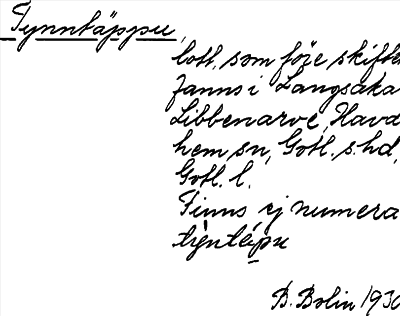 Tynntäppu,
lott, som före skifte
fanns i Langsaka
Libbenarve, Havd
hem sn, Gotl. s. hd,
Gotl. l.
Finns ej numera
B. Bolin 1930